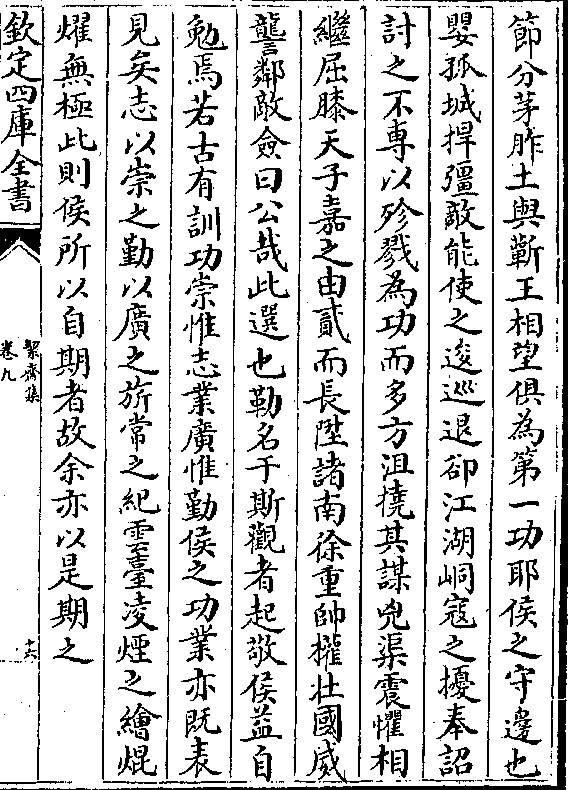 節分茅胙土與蘄王相望俱為第一功耶侯之守邊也
嬰孤城捍彊敵能使之逡巡退卻江湖峒寇之擾奉詔
討之不專以殄戮為功而多方沮撓其謀兇渠震懼相
繼屈膝天子嘉之由貳而長陞諸南徐重帥權壯國威
讋鄰敵僉曰公哉此選也勒名于斯觀者起敬侯益自
勉焉若古有訓功崇惟志業廣惟勤侯之功業亦既表
見矣志以崇之勤以廣之旂常之紀雲臺凌煙之繪焜
燿無極此則侯所以自期者故余亦以是期之
欽定四庫全書
絜齋集
卷九
十六